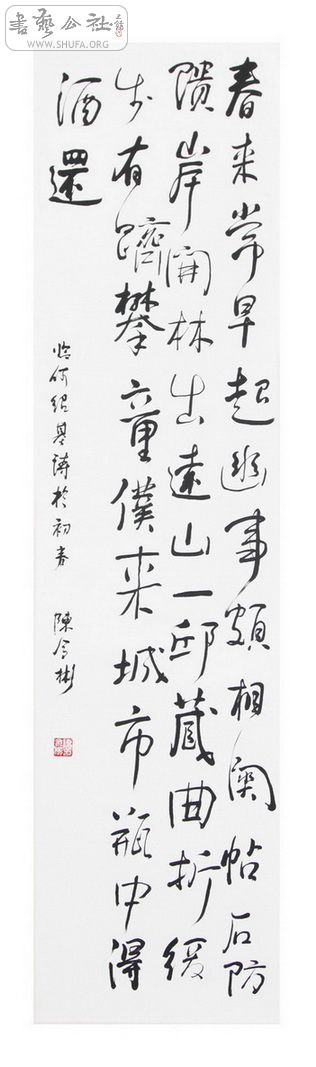 書藝公社
WWW.SHUFA.ORG
春来常早起幽事頗相關帖石防
隤岸開林出遠山一邱藏曲折緩
步有躋攀童僕来城市瓶中得
酒還
临何绍基诗於初春
陳令彬